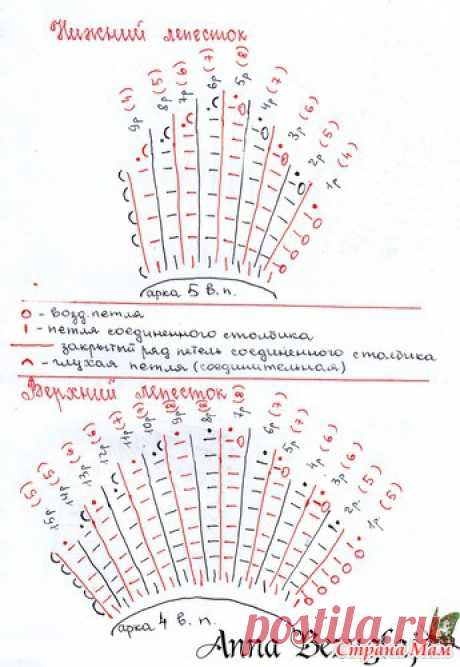 Нижний лепесток
9р (4)
8р (5)
7р (6)
6р (7)
5р (8)
4р (7)
3р (6)
2р (5)
1р (4)
арка 5 в.п.
- возд. петля
- петля соединенного столбика
- закрытый ряд петель соединенного столбика
- глухая петля (соединительная)
Верхний лепесток
15р (5)
14р (5)
13р (6)
12р (6)
11р (7)
10р (7)
9р (8)
8р (8)
7р (8)
6р (7)
5р (7)
4р (6)
3р (6)
2р (5)
1р (5)
арка 4 в.п.
Anna
postila.ru
Страна Мам